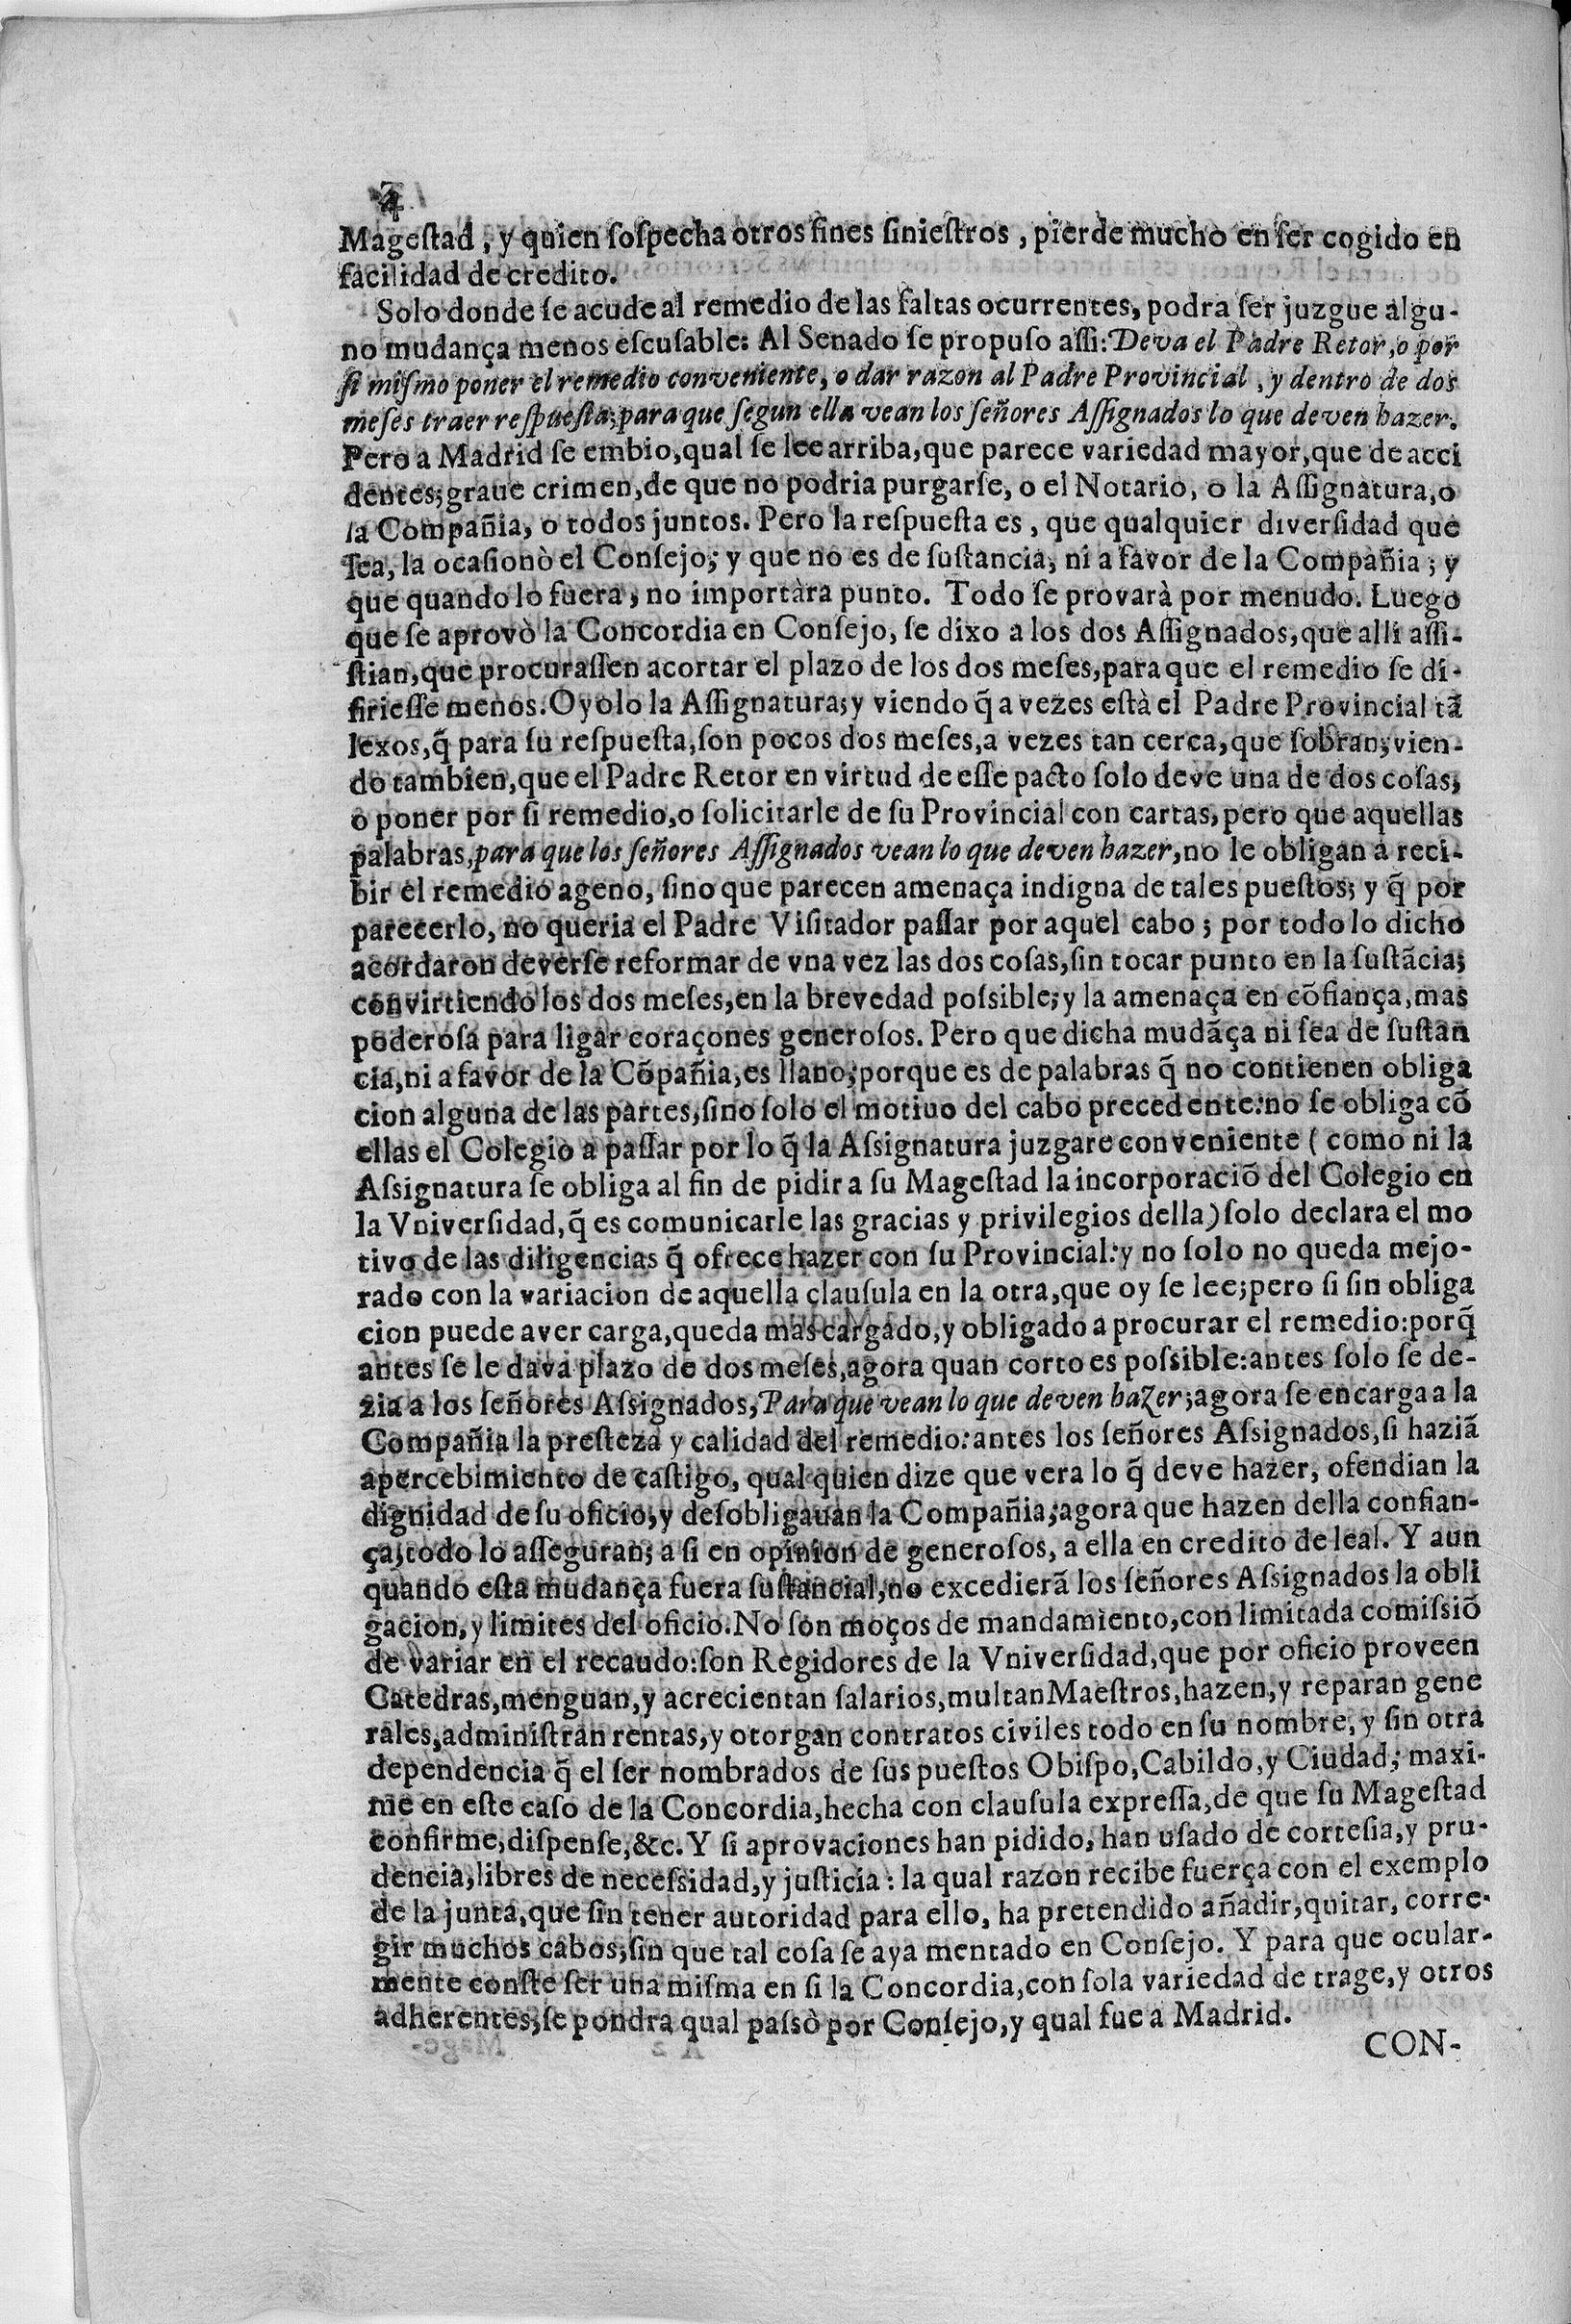 4
Magestad, y quien sospecha otros fines siniestros, pierde mucho en ser cogido en
facilidad de credito.
Solo donde se acude al remedio de las faltas ocurrentes, podra ser juzgue algu-
no mudança menos escusable: Al Senado se propuso assi: Deva el Padre Retor, o por
si mismo poner el remedio conveniente, o dar razon al Padre Provincial, y dentro de dos
meses traer respuesta; para que segun ella vean los señores Assignados lo que deven hazer.
Pero a Madrid se embio, qual se lee arriba, que parece variedad mayor, que de acci
dentes; graue crimen, de que no podria purgarse, o el Notario, o la Assignatura, o
la Compañia, o todos juntos. Pero la respuesta es, que qualquier diversidad que
sea, la ocasionò el Consejo; y que no es de sustancia, ni a favor de la Compañia; y
que quando lo fuera, no importàra punto. Todo se provarà por menudo. Luego
que se aprovò la Concordia en Consejo, se dixo a los dos Assignados, que alli assi-
stian, que procurassen acortar el plazo de los dos meses, para que el remedio se di-
firiesse menos. Oyolo la Assignatura; y viendo q̃ a vezes està el Padre Provincial tã
lexos, q̃ para su respuesta, son pocos dos meses, a vezes tan cerca, que sobran; vien-
do tambien, que el Padre Retor en virtud de esse pacto solo deve una de dos cosas,
o poner por si remedio, o solicitarle de su Provincial con cartas, pero que aquellas
palabras, para que los señores Assignados vean lo que deven hazer, no le obligan a reci-
bir el remedio ageno, sino que parecen amenaça indigna de tales puestos; y q̃ por
parecerlo, no queria el Padre Visitador passar por aquel cabo; por todo lo dicho
acordaron deverse reformar de vna vez las dos cosas, sin tocar punto en la sustãcia;
convirtiendo los dos meses, en la brevedad possible; y la amenaça en cõfiança, mas
poderosa para ligar coraçones generosos. Pero que dicha mudãça ni sea de sustan
cia, ni a favor de la Cõpañia, es llano; porque es de palabras q̃ no contienen obliga
cion alguna de las partes, sino solo el motiuo del cabo precedente: no se obliga cõ
ellas el Colegio a passar por lo q̃ la Assignatura juzgare conveniente ( como ni la
Assignatura se obliga al fin de pidir a su Magestad la incorporaciõ del Colegio en
la Vniversidad, q̃ es comunicarle las gracias y privilegios della) solo declara el mo
tivo de las diligencias q̃ ofrece hazer con su Provincial: y no solo no queda mejo-
rado con la variacion de aquella clausula en la otra, que oy se lee; pero si sin obliga
cion puede aver carga, queda mas cargado, y obligado a procurar el remedio: porq̃
antes se le dava plazo de dos meses, agora quan corto es possible: antes solo se de-
zia a los señores Assignados, Para que vean lo que deven hazer; agora se encarga a la
Compañia la presteza y calidad del remedio: antes los señores Assignados, si haziã
apercebimiento de castigo, qual quien dize que vera lo q̃ deve hazer, ofendian la
dignidad de su oficio, y desobligauan la Compañia; agora que hazen della confian-
ça, todo lo asseguran; a si en opinion de generosos, a ella en credito de leal. Y aun
quando esta mudança fuera sustancial, no excedierã los señores Assignados la obli
gacion, y limites del oficio. No son moços de mandamiento, con limitada comissiõ
de variar en el recaudo: son Regidores de la Vniversidad, que por oficio proveen
Catedras, menguan, y acrecientan salarios, multan Maestros, hazen, y reparan gene
rales, administran rentas, y otorgan contratos civiles todo en su nombre, y sin otra
dependencia q̃ el ser nombrados de sus puestos Obispo, Cabildo, y Ciudad; maxi-
me en este caso de la Concordia, hecha con clausula expressa, de que su Magestad
confirme, dispense, &c. Y si aprovaciones han pidido, han usado de cortesia, y pru-
dencia, libres de necessidad, y justicia: la qual razon recibe fuerça con el exemplo
de la junta, que sin tener autoridad para ello, ha pretendido añadir, quitar, corre-
gir muchos cabos, sin que tal cosa se aya mentado en Consejo. Y para que ocular-
mente conste ser una misma en si la Concordia, con sola variedad de trage, y otros
adherentes, se pondra qual passò por Consejo, y qual fue a Madrid.
CON-